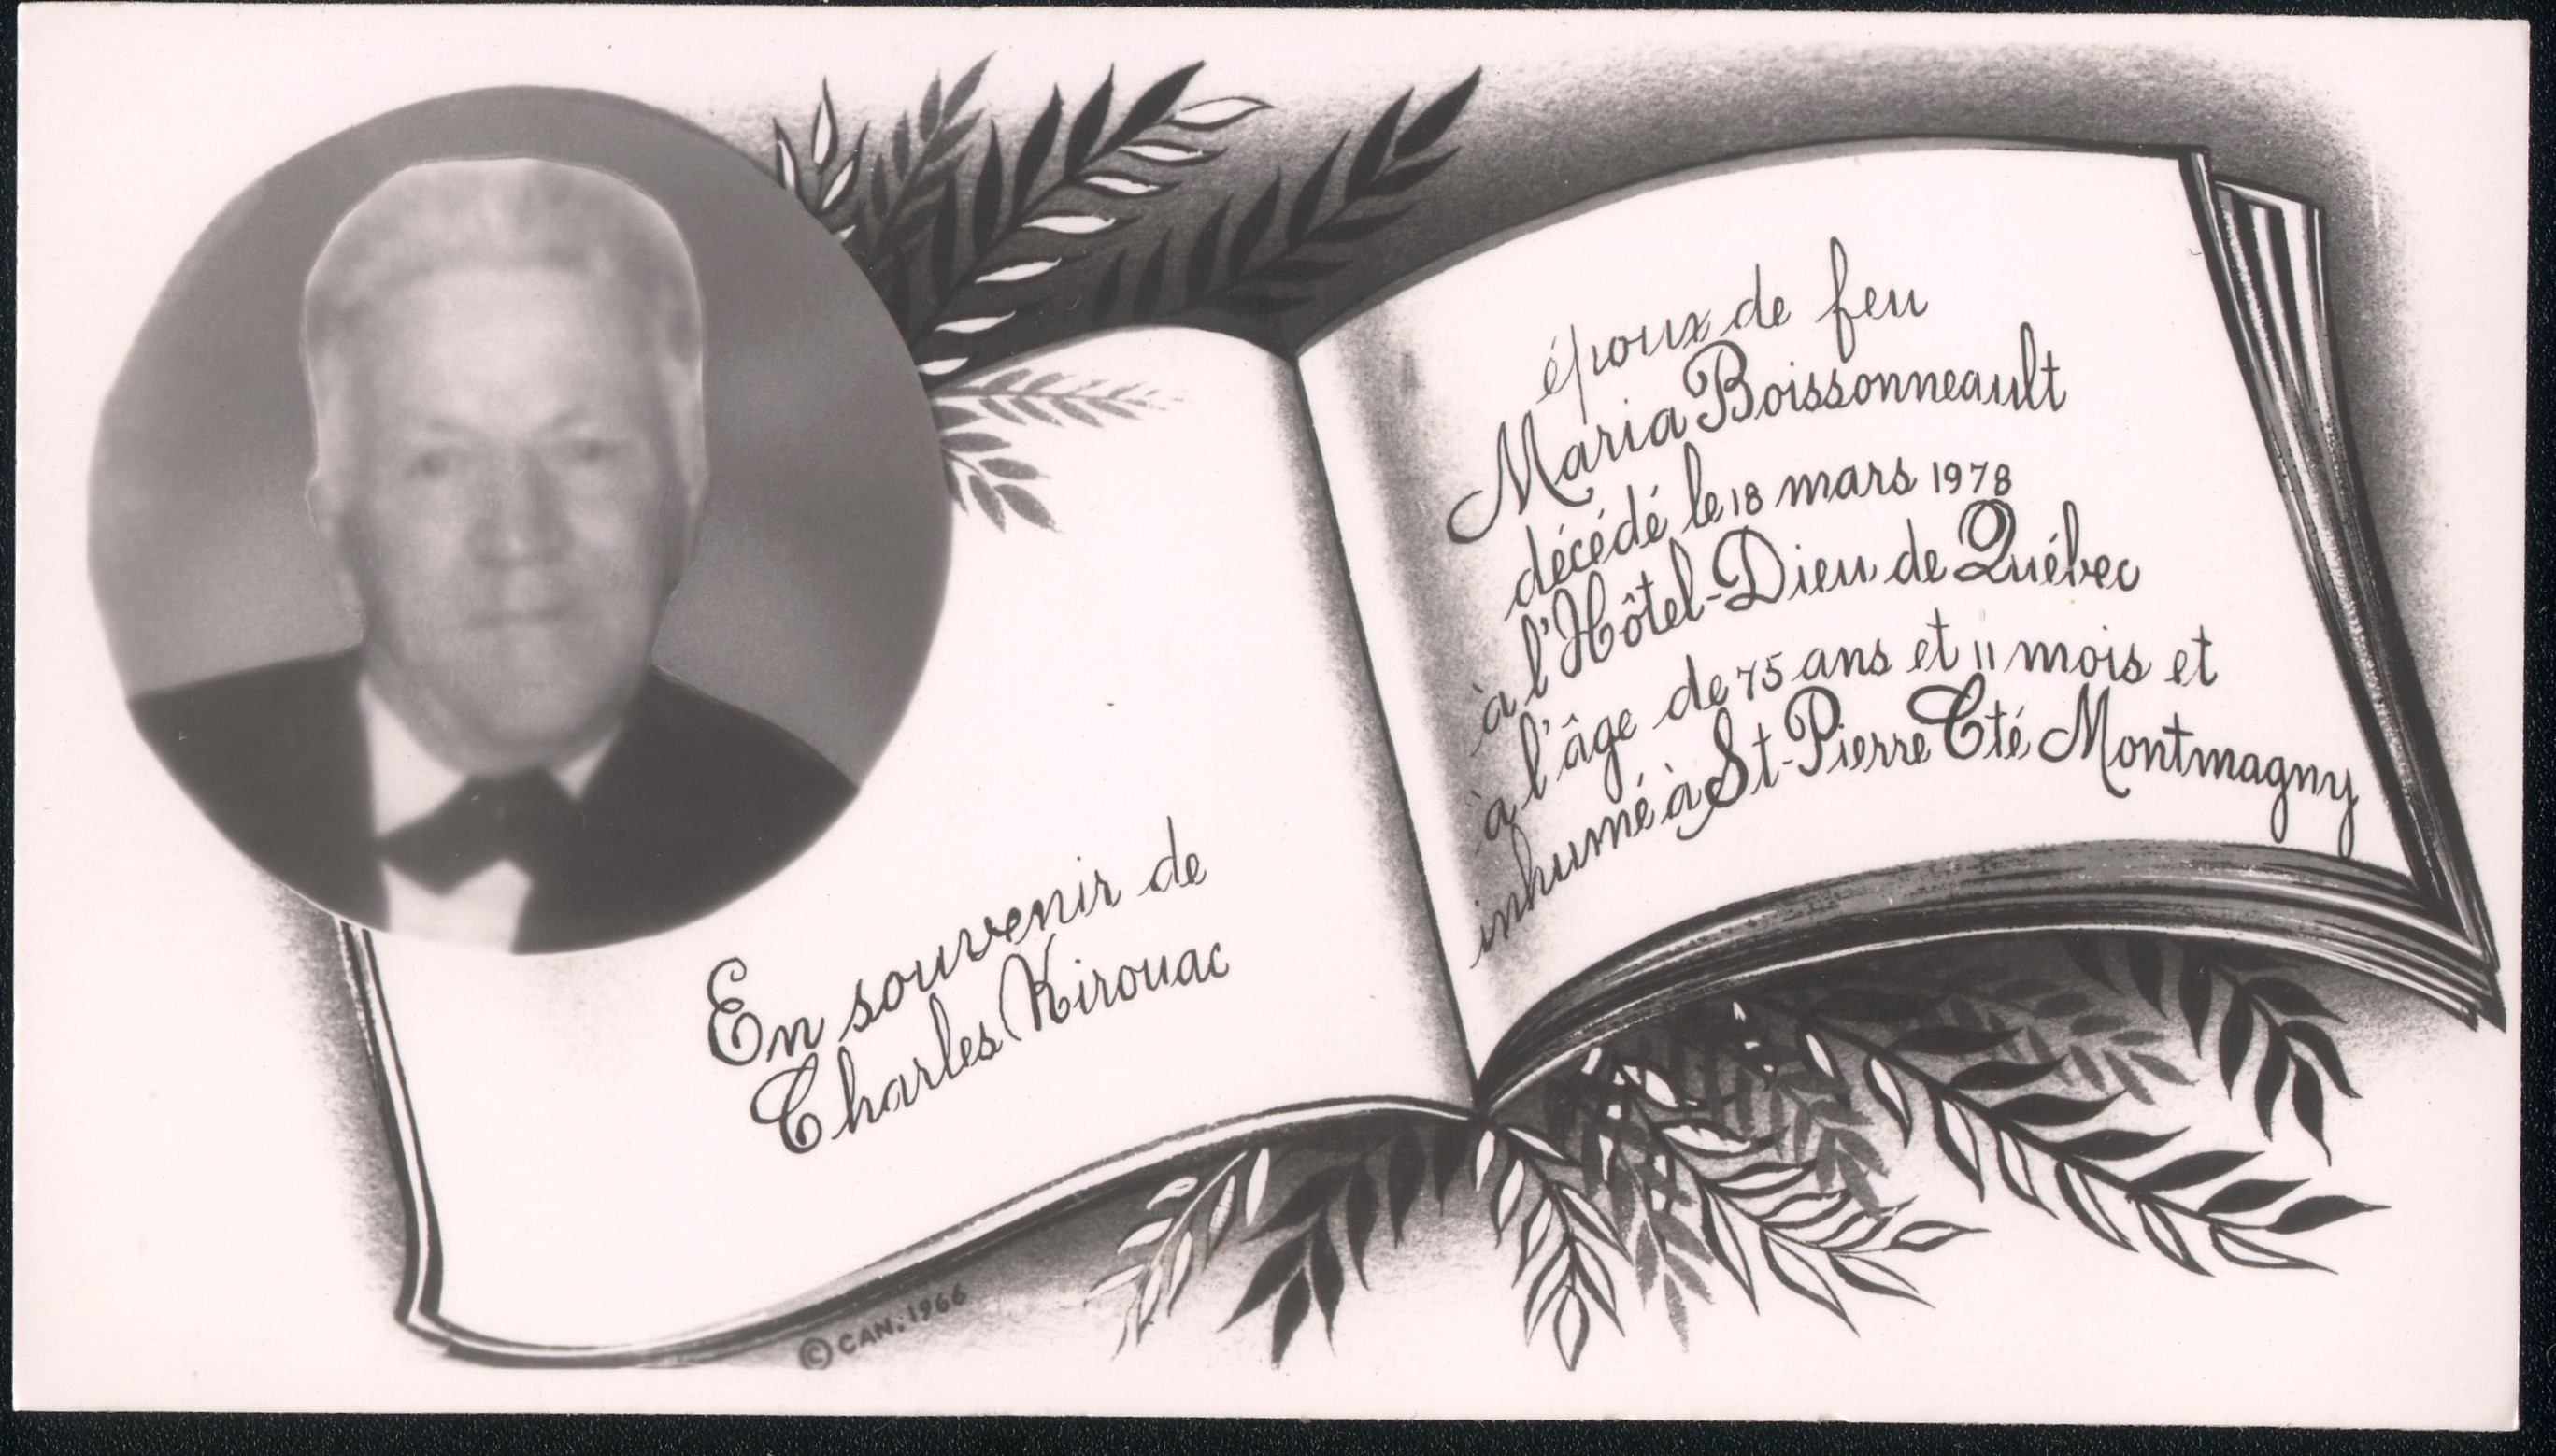 En souvenir de
Charles Kirouac
époux de feu
Maria Boissonneault
décédé le 18 mars 1978
à l'Hôtel-Dieu de Québec
à l'âge de 75 ans et 11 mois et
inhumé à St-Pierre Cté Montmagny
© CAN. 1966